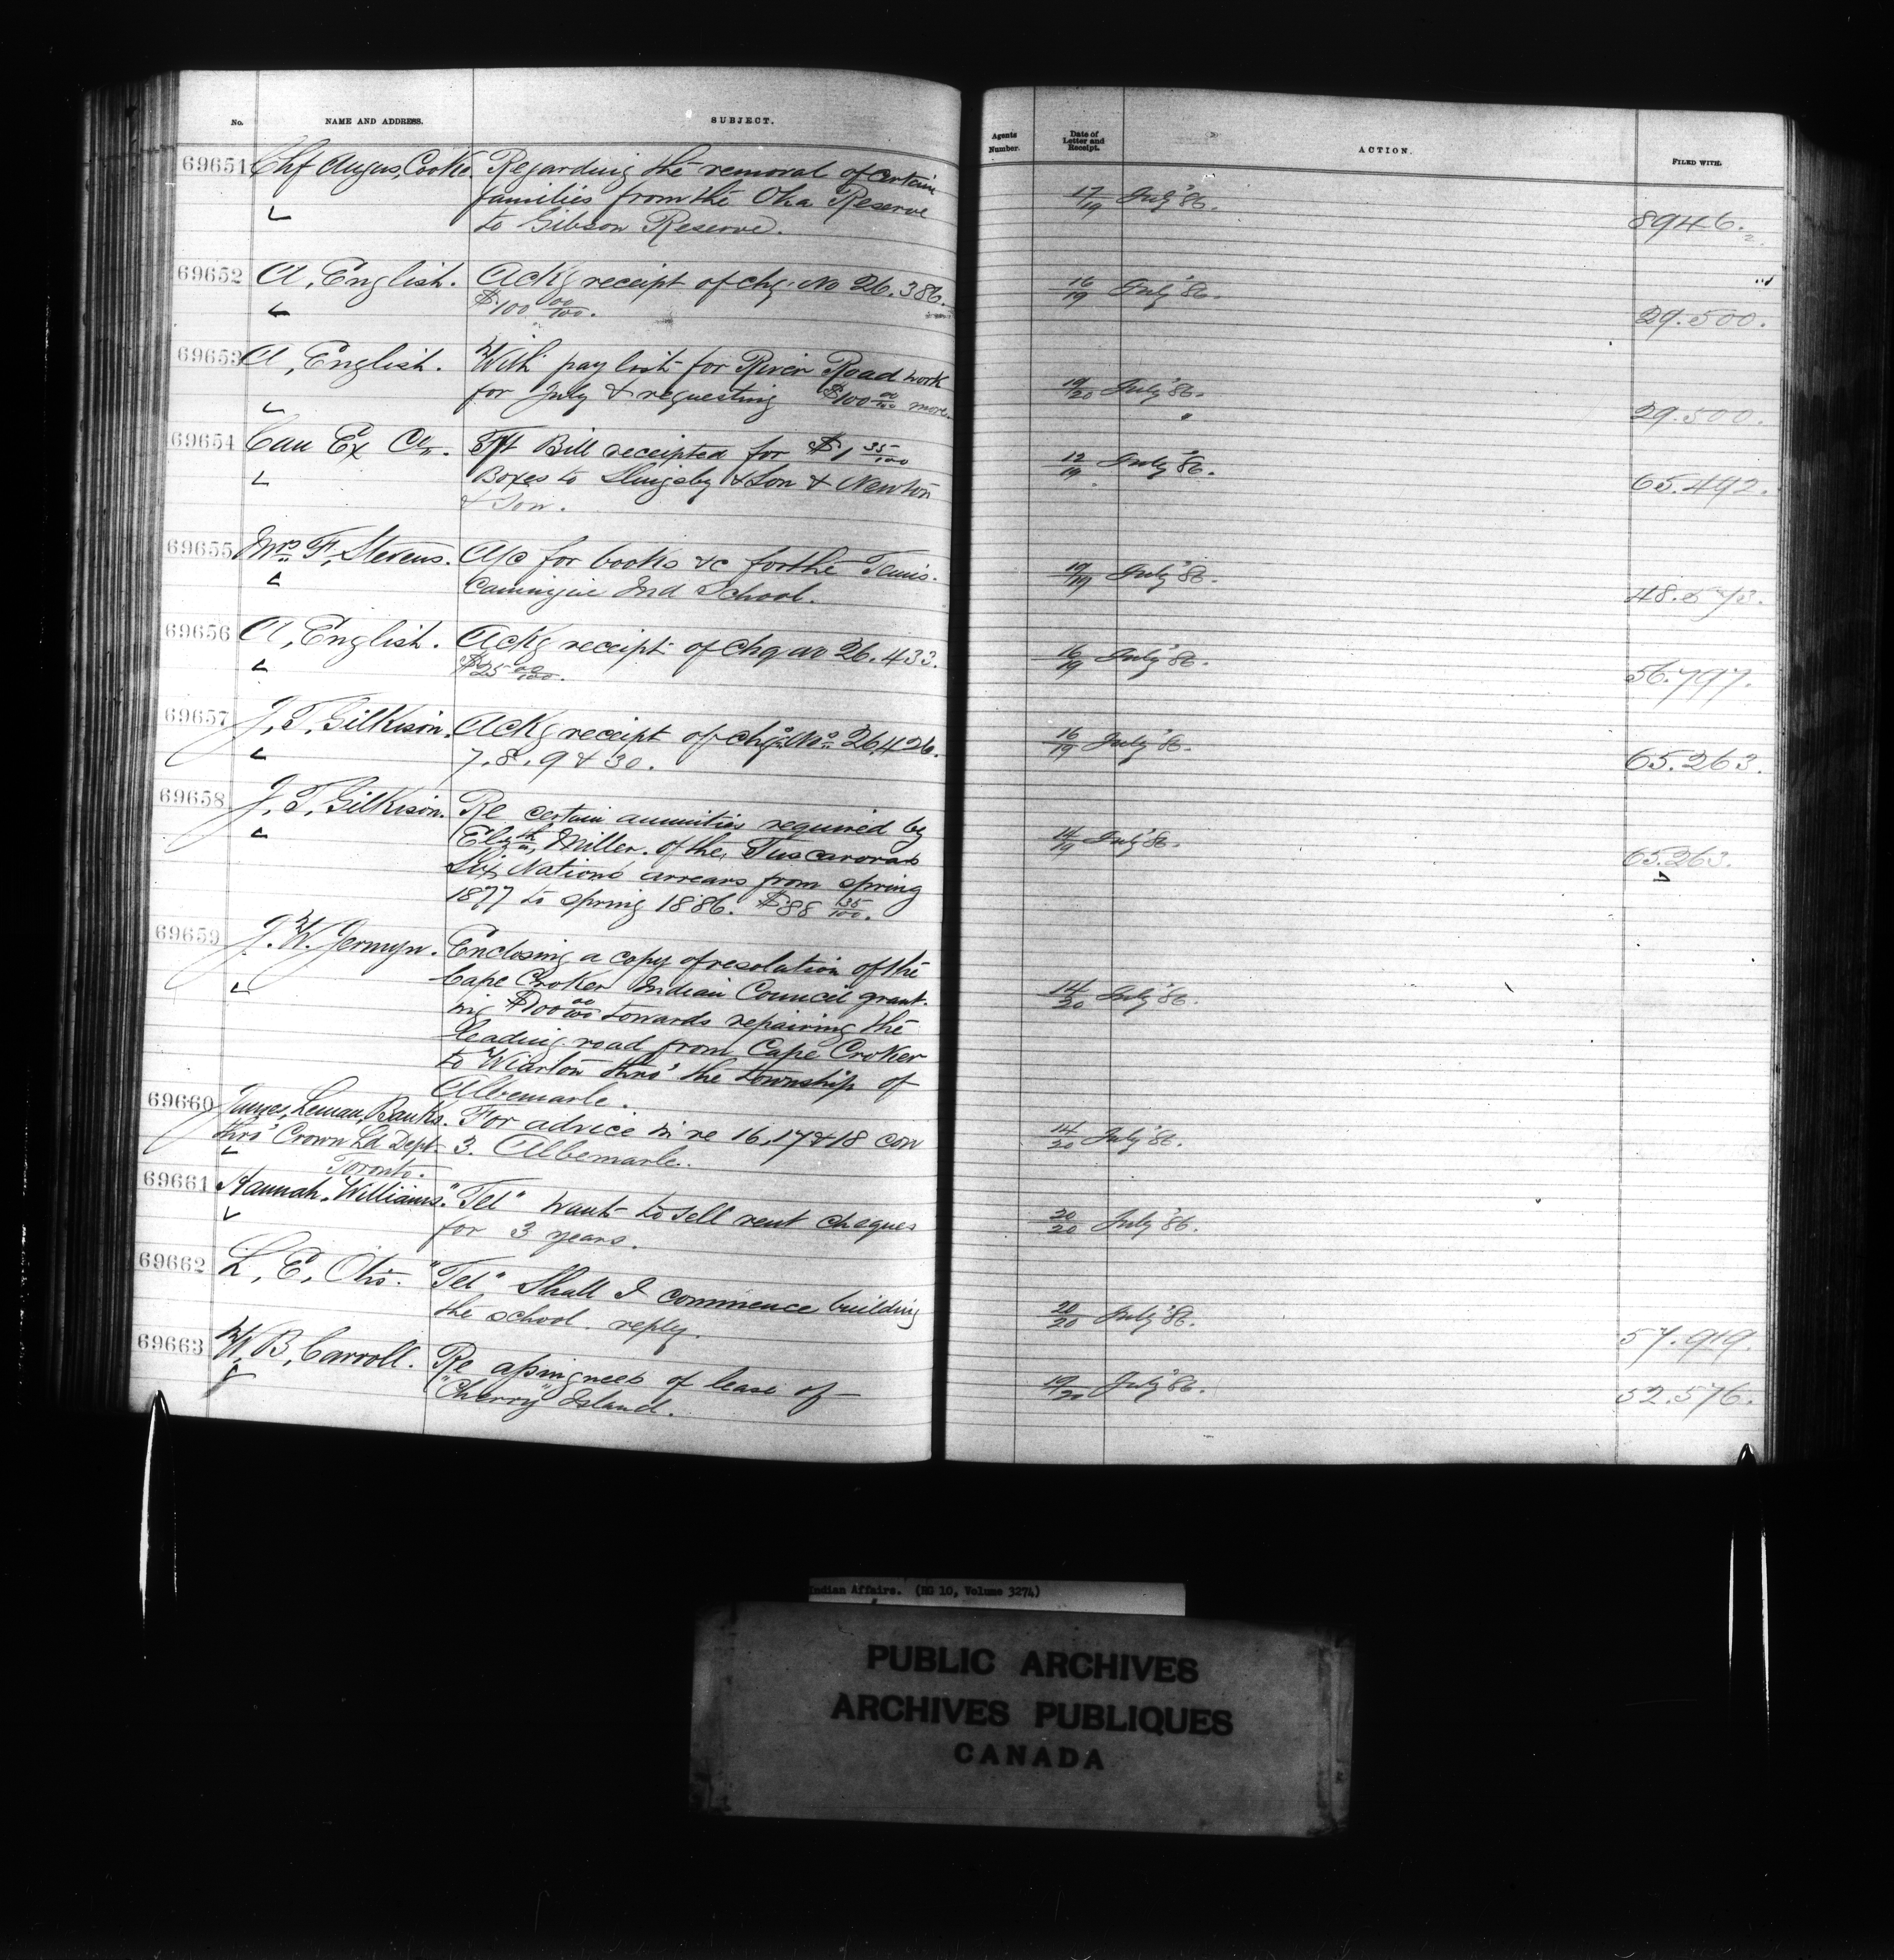 No. NAME AND ADDRESS. SUBJECT. Agents Number. Date of Letter and Receipt. ACTION. FILED WITH.
69651 Chf Angus, Cooke. Regarding the removal of certain
families from the Oka Reserve 17/19 July '86.
to Gibson Reserve. 8946.
69652 A, English. Ackg receipt of chq. No 26.386. 16/19 July '86.
$100 00/100. 29.500.
69653 A, English. With pay list for River Road work
for July & requesting $100 00/100 more. 19/20 July '86.
29.500.
69654 Can Ex Co. Fft Bill receipted for $1 35/100 12/19 July '86.
Boxes to Slingsby & Son & Newton 65.492.
& Son.
69655 Mrs F, Stevens. A/c for books &c for the Temis- 17/19 July '86.
camingue Ind School. 48.573.
69656 A, English. Ackg receipt of Chq no 26.433. 16/19 July '86.
$25 00/100. 56.797.
69657 J, T, Gilkison. Ackg receipt of chqs Nos 26,426. 16/19 July '86.
7. 8. 9 & 30. 65.263.
69658 J, T, Gilkison. Re certain annuities required by
Elizth Miller. of the, Tuscaroras 14/19 July '86.
Six Nations arrears from spring 65.263.
1877 to spring 1886. $88 35/100.
69659 J. W. Jermyn. Enclosing a copy of resolution of the
Cape Croker Indian Council grant- 14/20 July '86.
ing $100 00/100 towards repairing the
leading road from Cape Croker
to Wiarton thro' the township of
Albemarle.
69660 James, Leman, Banks. For advice in re 16, 17 & 18 con
thro' Crown Ld Dept 3. Albemarle. 14/20 July '86.
Toronto.
69661 Hannah, Williams. "Tel" want to sell rent cheques 20/20 July '86.
for 3 years.
69662 L, E, Otis. "Tel" Shall I commence building 20/20 July '86.
the school. reply. 57.919.
69663 W, B, Carroll. Re assignees of lease of 19/20 July '86.
"Cherry" Island. 52.576.
Indian Affairs. (RG 10, Volume 3274)
PUBLIC ARCHIVES
ARCHIVES PUBLIQUES
CANADA